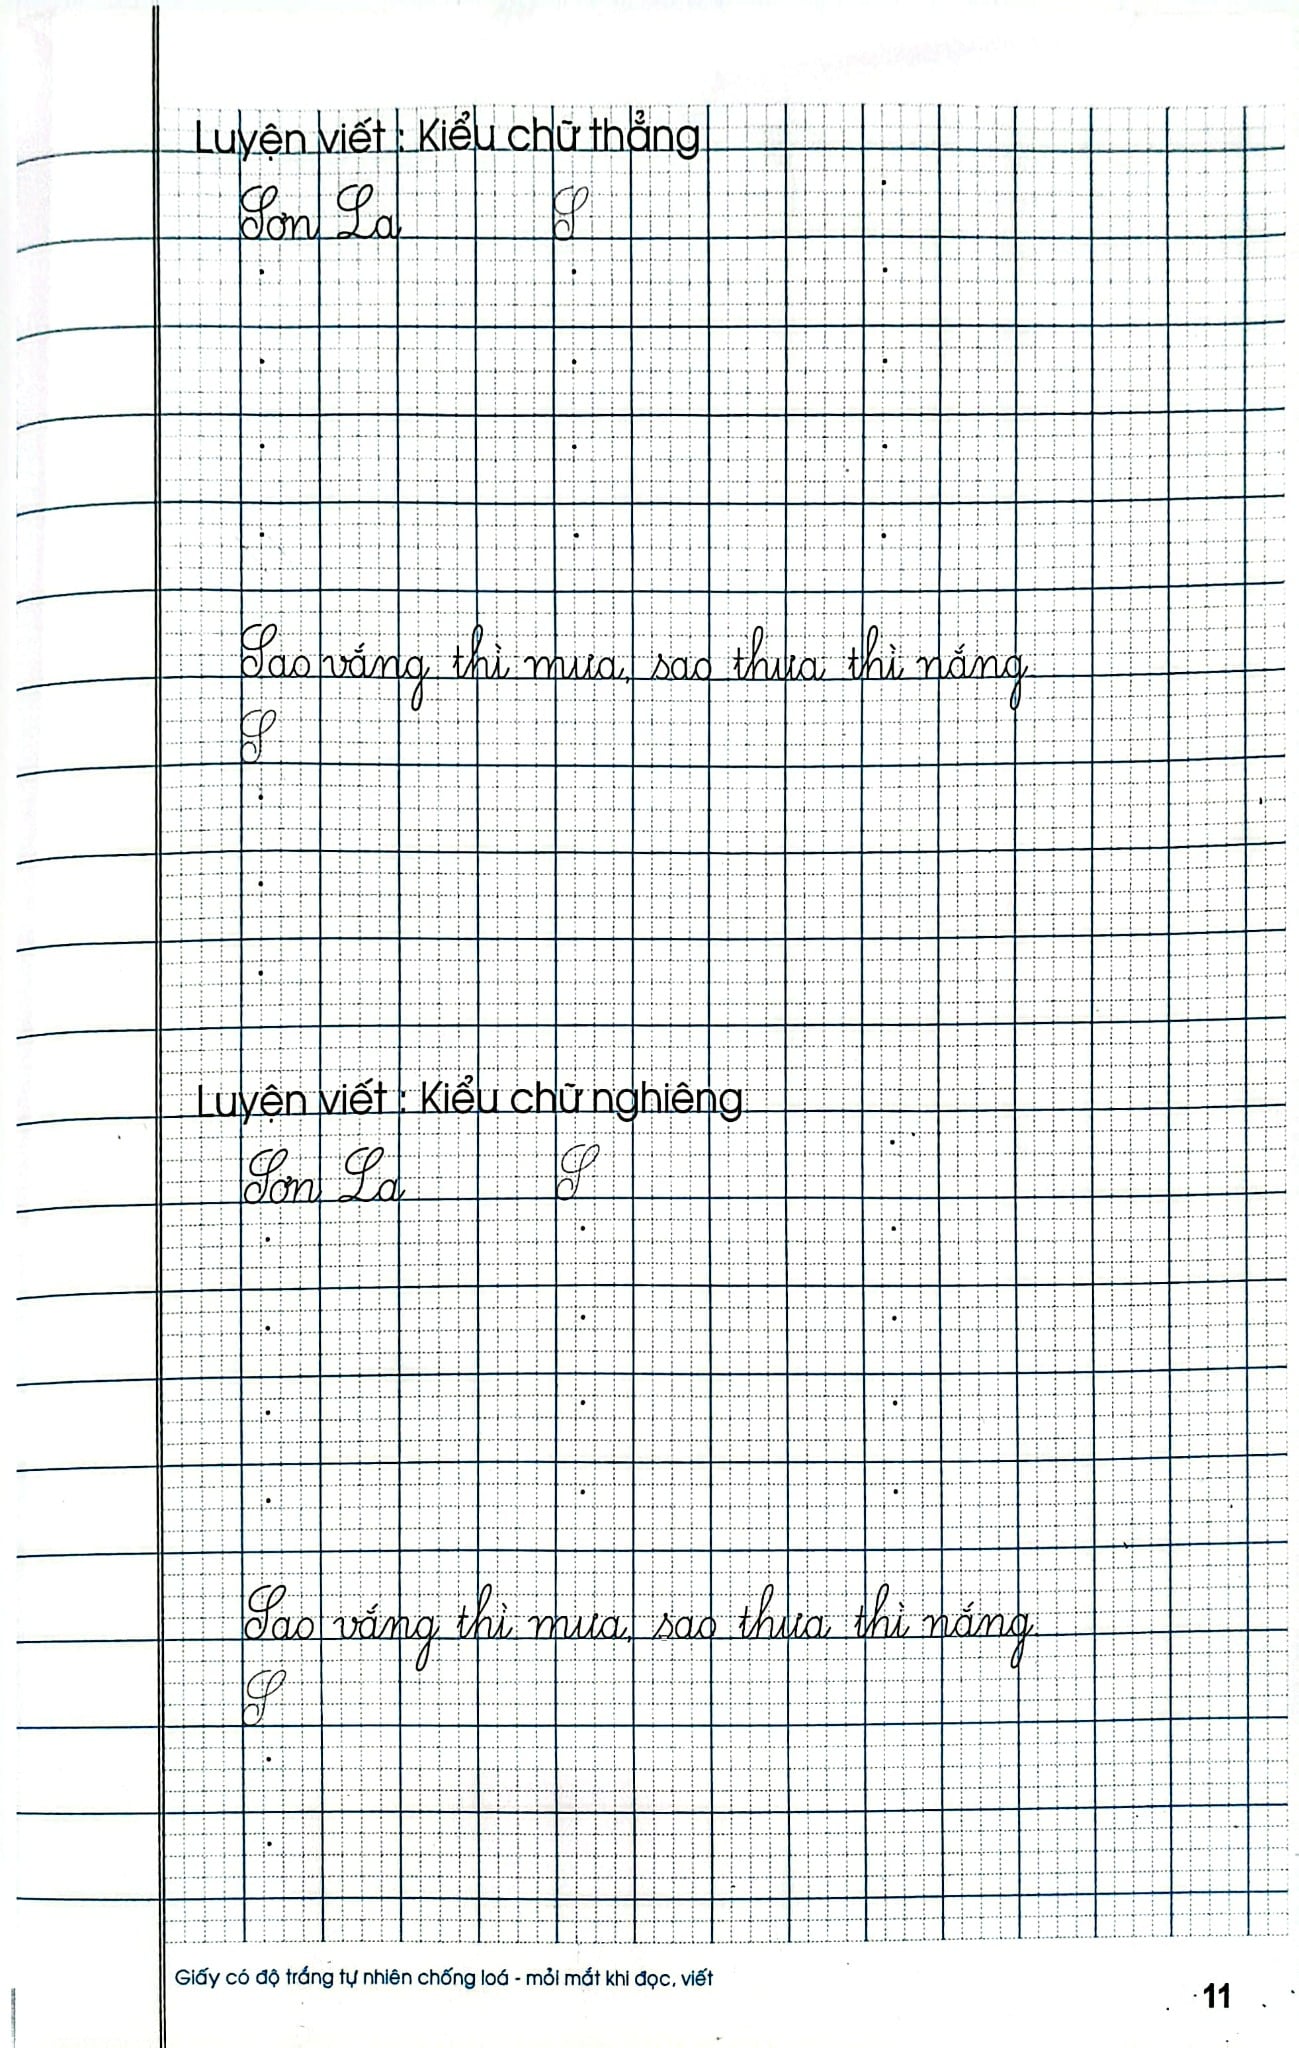 Luyện viết : Kiểu chữ thẳng
Sơn La S
Sao vắng thì mưa, sao thưa thì nắng
S
Luyện viết : Kiểu chữ nghiêng
Sơn La S
Sao vắng thì mưa, sao thưa thì nắng
S
Giấy có độ trắng tự nhiên chống loá - mỏi mắt khi đọc, viết
11